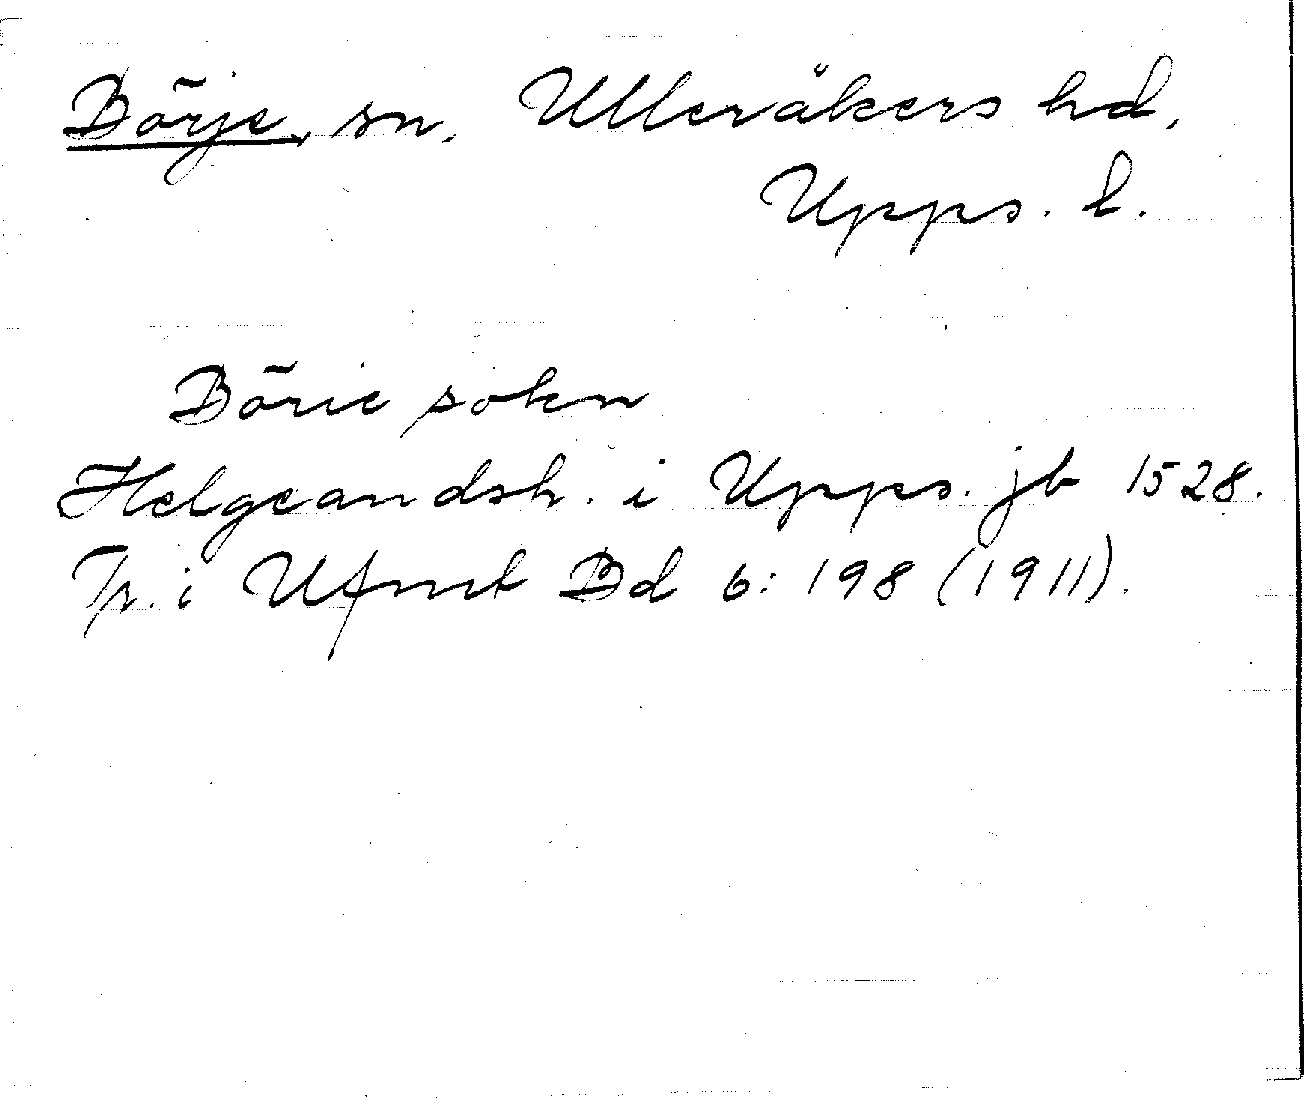 Börje, sn, Ulleråkers hd,
Upps. l.
Börie sokn
Helgeandsh. i Upps. jb 1528.
Tr. i Ufmt Bd 6: 198 (1911).